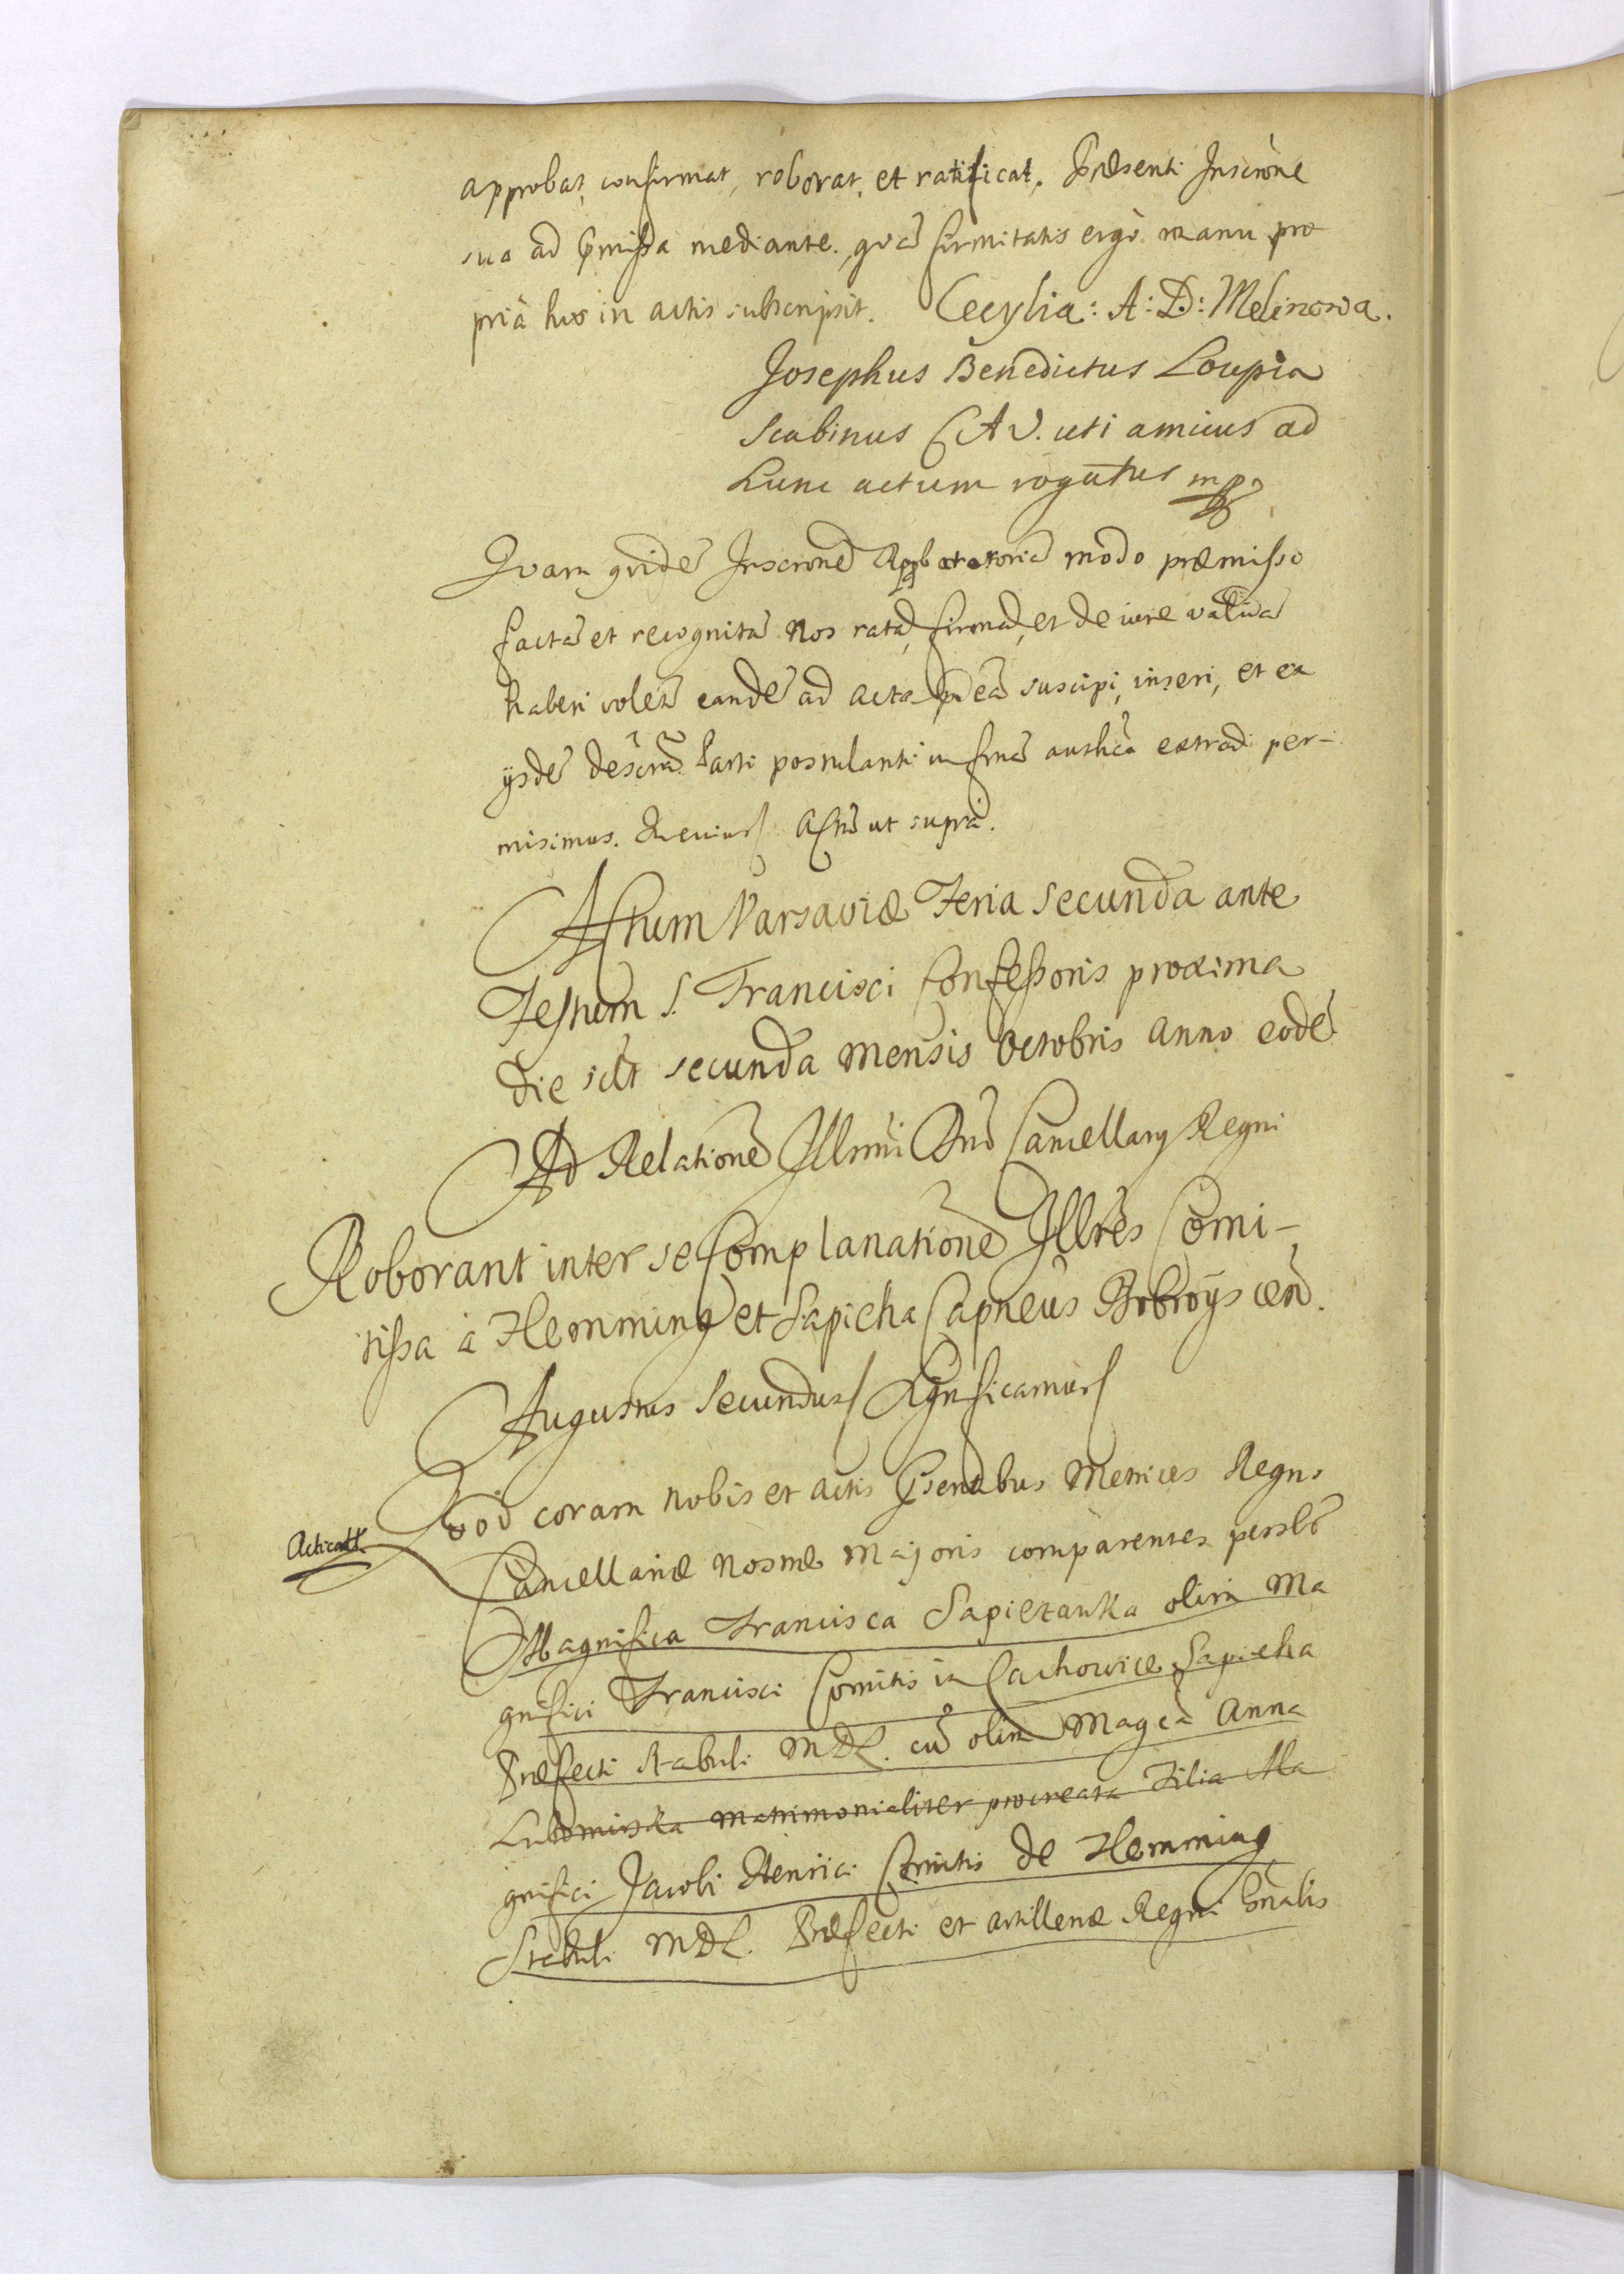 approbat, confirmat, roborat, et ratificat. Præsenti Inscrõne
sua ad p̃missa mediante. quã firmitatis ergò manu pro
prià hic in actis subscripsit. Cecylia: A: D: Melinowa.
Josephus Benedictus Loupia
Scabinus CAV. uti amicus ad
hunc actum rogatus mp
Qvam qvidẽ Inscronẽ Appbatoriã modo præmisso
factã et recognitã Nos ratã, firmã, et de iure validã
haberi volẽs eandẽ ad acta pñtia suscipi, inseri, et ex
ijsdẽ descriptã Parti postulanti in formã authcã extradi per-
misimus. In cuius Actũ ut suprà.
Actum Varsaviæ Feria secunda ante
Festum S. Francisci Confessoris proxima
die sclt secunda mensis Octobris Anno eodẽ
Ad Relationẽ Illmi Dnĩ Cancellarij Regni
Roborant inter se Complanationẽ Illres Comi-
tissa à Flemming et Sapieha Capneus Bobroyscen.
Augustus Secundus Sgnficamus
Acticatt
Quod coram nobis et actis p̃sentibus Metrices Regni
Cancellariæ nostræ Majoris comparentes persltẽr
Magnifica Francisca Sapiezanka olim Ma
gnifici Francisci Comitis in Czachowice Sapieha
Præfecti Stabuli MDL. cũ olim Magcã Anna
Lubomirska matrimonialiter procreata Filia Ma
gnifici Jacobi Henrici Comitis de Flemming
Stabuli MDL. Præfecti et Artilleriæ Regni Gñalis